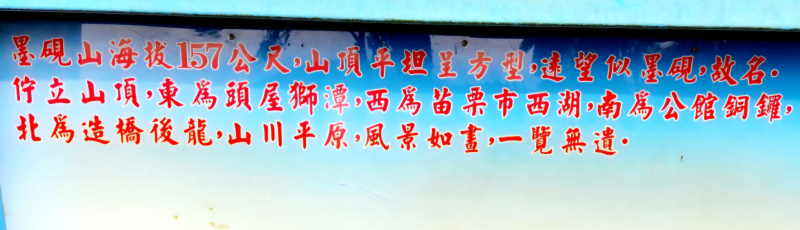 墨硯山海拔157公尺,山頂平坦呈方型,遠望似墨硯,故名.
佇立山頂,東為頭屋獅潭,西為苗栗市西湖,南為公館銅鑼,
北為造橋後龍,山川平原,風景如畫,一覽無遺.